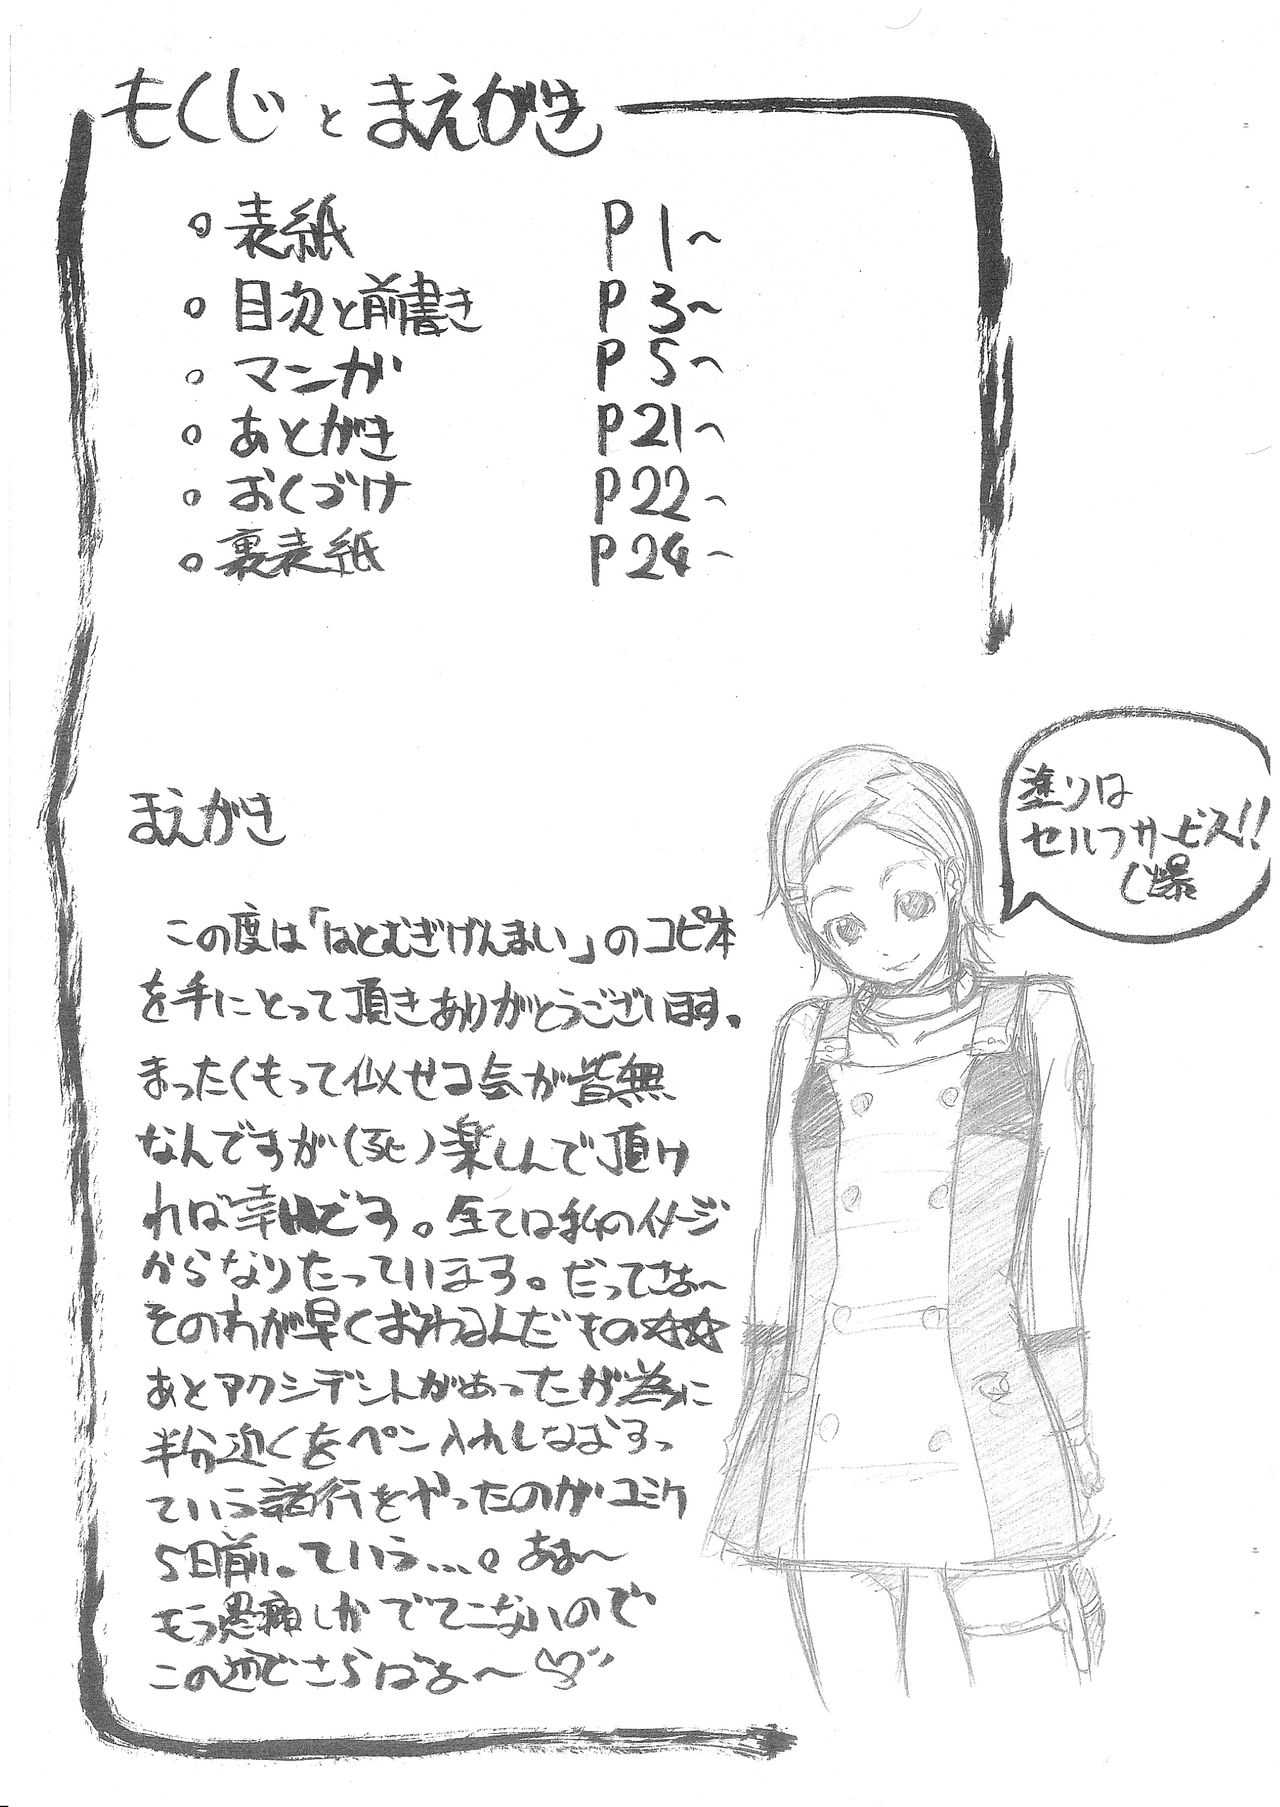 もくじ と まえがき
表紙 P1~
目次と前書き P3~
マンガ P5~
あとがき P21~
おくづけ P22~
裏表紙 P24~
塗りは
セルフサービス!!
まえがき
この度は「はとむぎげんまい」のコピ本
を手にとって頂きありがとうございます。
まったくもって似せる気が皆無
なんですが(死)楽しんで頂け
れば幸いです。全ては私のイメージ
からなりたっています。だってさぁ~
そのわが早くおわるんだもの☆☆
あとアクシデントがあったが為に
半分近くをペン入れしなおすっ
ていう諸行をやったのがコミケ
5日前。ていう...。あぁ~
もう愚痴しかでてこないので
この辺でさらばぁ~